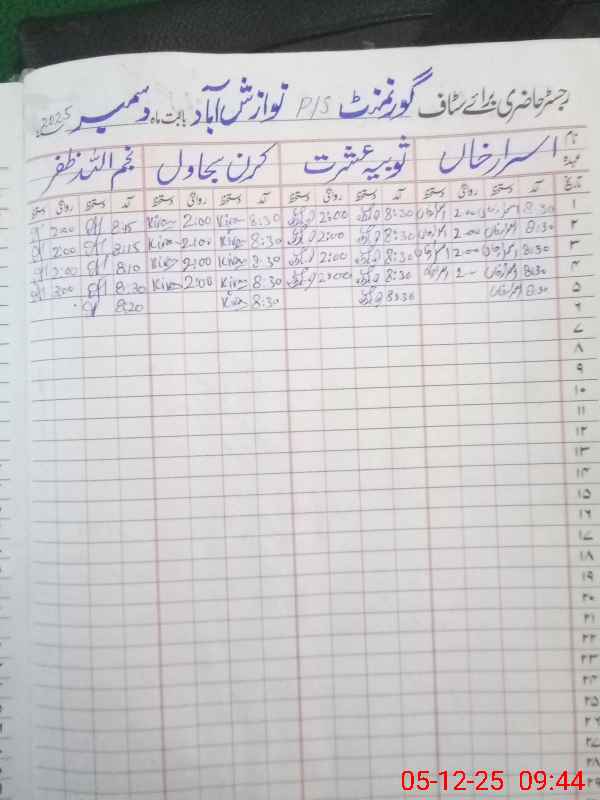 رجسٹر حاضری برائے سٹاف گورنمنٹ P/S نوازش آباد بابت ماہ دسمبر 2025ء
نام عہدہ اسرار خاں ثوبیہ عشرت کرن سجاول نجم اللہ ظفر
تاریخ آمد دستخط روانگی دستخط آمد دستخط روانگی دستخط آمد دستخط روانگی دستخط آمد دستخط روانگی دستخط
۱ 8:30 2:00 8:30 2:00 8:30 Kiran 2:00 Kiran 8:15 2:00
۲ 8:30 2:00 8:30 2:00 8:30 Kiran 2:00 Kiran 8:15 2:00
۳ 8:30 2:00 8:30 2:00 8:30 Kiran 2:00 Kiran 8:10 2:00
۴ 8:30 2:00 8:30 2:00 8:30 Kiran 2:00 Kiran 8:20 2:00
۵ 8:30 8:30 8:30 Kiran 8:20
۶
۷
۸
۹
۱۰
۱۱
۱۲
۱۳
۱۴
۱۵
۱۶
۱۷
۱۸
۱۹
۲۰
۲۱
۲۲
۲۳
۲۴
۲۵
۲۶
۲۷
۲۸
۲۹
05-12-25 09:44